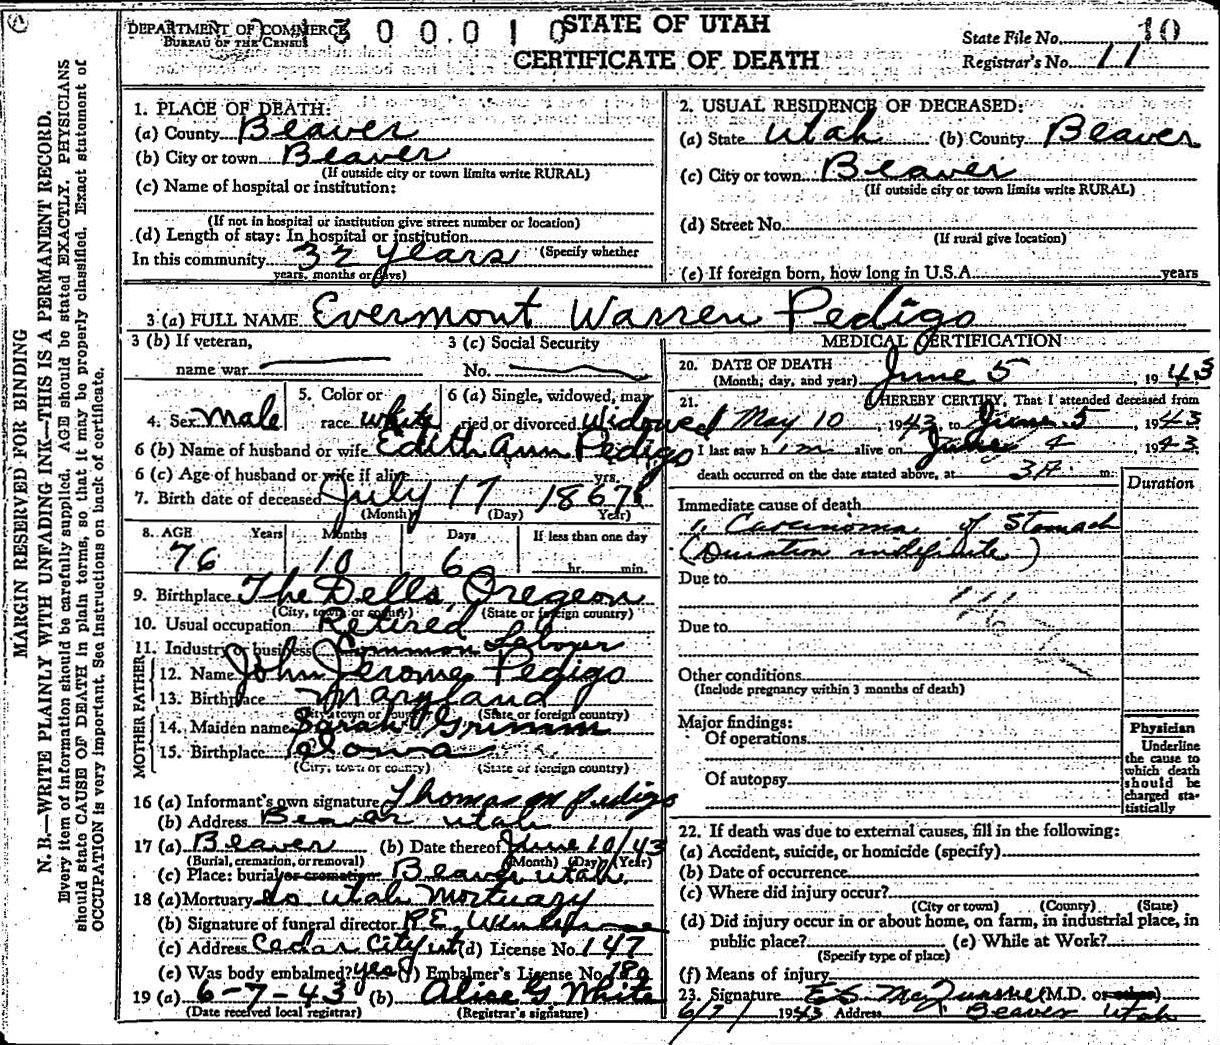 MARGIN RESERVED FOR BINDING
N. B.—WRITE PLAINLY WITH UNFADING INK—THIS IS A PERMANENT RECORD.
Every item of information should be carefully supplied. AGE should be stated EXACTLY. PHYSICIANS
should state CAUSE OF DEATH in plain terms, so that it may be properly classified. Exact statement of
OCCUPATION is very important. See instructions on back of certificate.
DEPARTMENT OF COMMERCE
BUREAU OF THE CENSUS
300.010
STATE OF UTAH
CERTIFICATE OF DEATH
State File No. 10
Registrar's No. 11
1. PLACE OF DEATH:
(a) County Beaver
(b) City or town Beaver
(If outside city or town limits write RURAL)
(c) Name of hospital or institution:
(If not in hospital or institution give street number or location)
(d) Length of stay: In hospital or institution
In this community 32 years (Specify whether
years, months or days)
2. USUAL RESIDENCE OF DECEASED:
(a) State Utah (b) County Beaver
(c) City or town Beaver
(If outside city or town limits write RURAL)
(d) Street No.
(If rural give location)
(e) If foreign born, how long in U.S.A. years
3 (a) FULL NAME Evermont Warren Pedigo
3 (b) If veteran,
name war
3 (c) Social Security
No.
4. Sex male
5. Color or
race white
6 (a) Single, widowed, mar
ried or divorced Widowed
6 (b) Name of husband or wife Edith Ann Pedigo
6 (c) Age of husband or wife if alive yrs.
7. Birth date of deceased July 17 1867
(Month) (Day) Year)
8. AGE Years Months Days If less than one day
76 10 6 hr. min.
9. Birthplace The Dells, Oregeon
(City, town or county) (State or foreign country)
10. Usual occupation Retired
11. Industry or business Common Laborer
FATHER
12. Name John Jerome Pedigo
13. Birthplace Maryland
(City, town or county) (State or foreign country)
MOTHER
14. Maiden name Sarah Grimm
15. Birthplace Iowa
(City, town or county) (State or foreign country)
16 (a) Informant's own signature Thomas M Pedigo
(b) Address Beaver Utah
17 (a) Beaver (b) Date thereof June 10/43
(Burial, cremation, or removal) (Month) (Day) (Year)
(c) Place: burial or cremation Beaver Utah
18 (a) Mortuary So Utah Mortuary
(b) Signature of funeral director R.E.
(c) Address Cedar City Ut (d) License No. 147
(e) Was body embalmed? yes (f) Embalmer's License No. 189
19 (a) 6-7-43 (b) Alice G. White
(Date received local registrar) (Registrar's signature)
MEDICAL CERTIFICATION
20. DATE OF DEATH
(Month, day, and year) June 5, 1943
21. I HEREBY CERTIFY, That I attended deceased from
May 10, 1943, to June 5, 1943
I last saw him alive on June 4, 1943
death occurred on the date stated above, at 3 A m.
Duration
Immediate cause of death
1. Carcinoma of Stomach
(Duration indefinite)
Due to
Due to
Other conditions
(Include pregnancy within 3 months of death)
Major findings:
Of operations
Of autopsy
Physician
Underline
the cause to
which death
should be
charged sta-
tistically
22. If death was due to external causes, fill in the following:
(a) Accident, suicide, or homicide (specify)
(b) Date of occurrence
(c) Where did injury occur?
(City or town) (County) (State)
(d) Did injury occur in or about home, on farm, in industrial place, in
public place? (e) While at Work?
(Specify type of place)
(f) Means of injury
23. Signature (M.D. or other)
6/7/1943 Address Beaver Utah